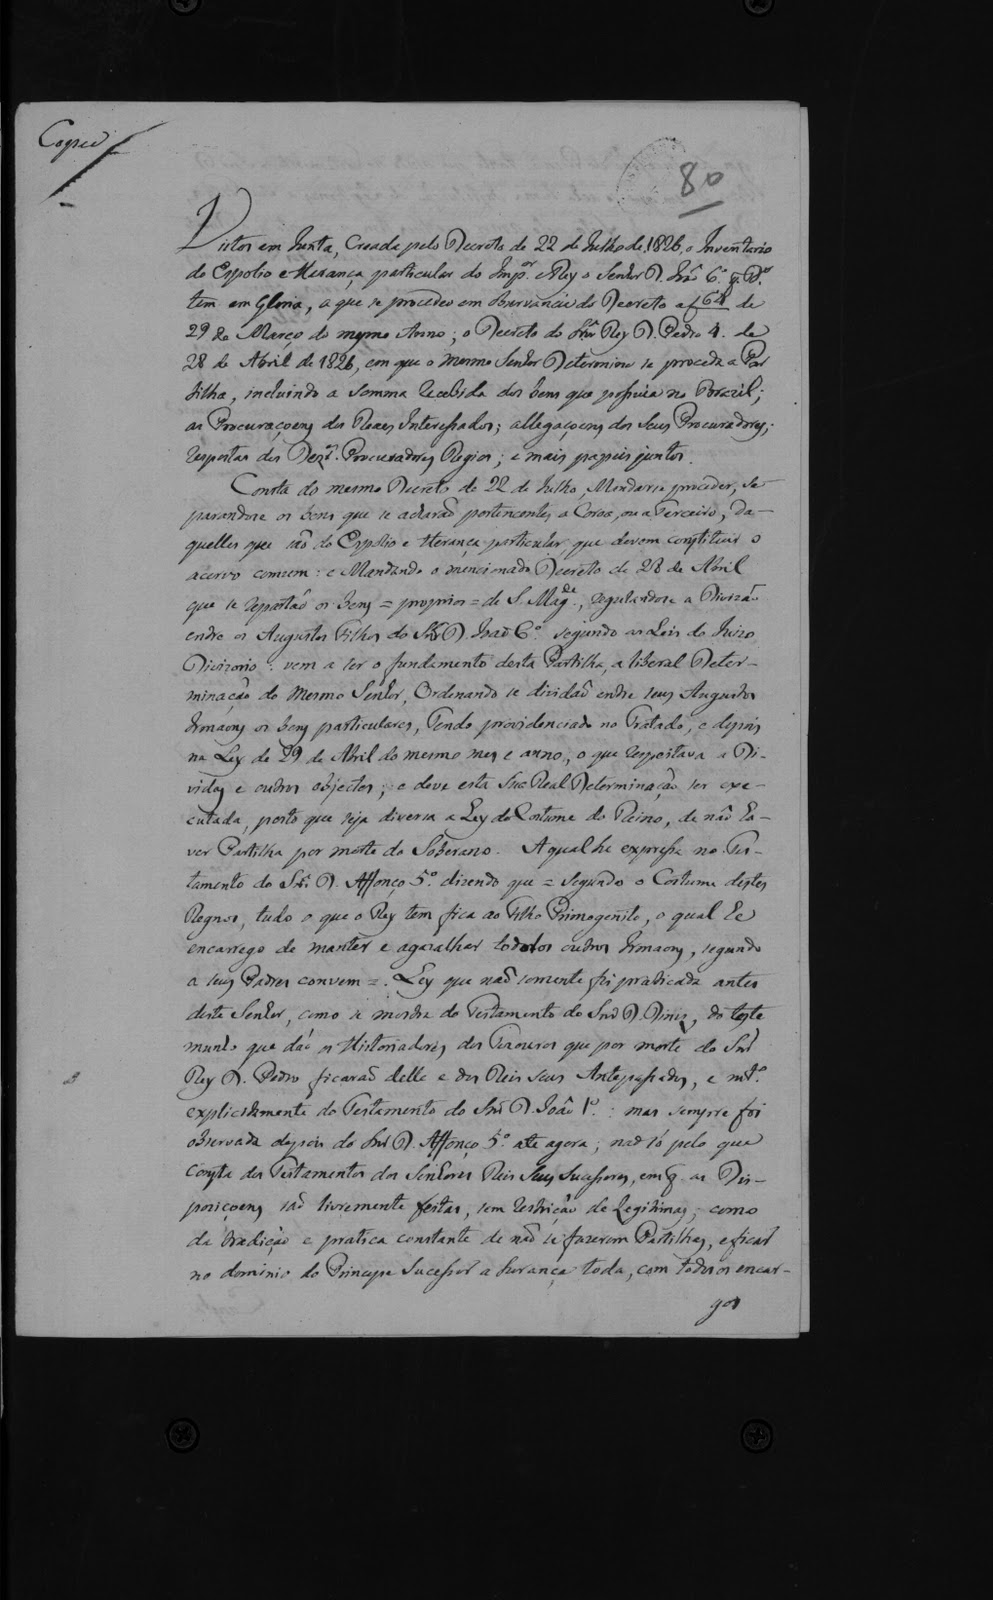 Copia
80
Vistos em Junta, Creada pelo Decreto de 22 de Julho de 1826, o Inventario
do Espolio e Herança particular do Imp.or e Rey o Senhor D. João 6.º q. D.s
tem em Gloria, a que se procedeo em observancia do Decreto a f 64 de
29 de Março do mesmo Anno; o Decreto do Snr Rey D. Pedro 4. de
28 de Abril de 1826, em que o mesmo Senhor Determinou se proceda a Par
tilha, incluindo a somma recebida dos bens que possuia no Brazil;
as Procuraçoens dos Reaes Interessados; allegaçoens dos Seus Procuradores;
respostas dos Dez.es Procuradores Regios; e mais papeis juntos.
Consta do mesmo Decreto de 22 de Julho, Mandarse proceder, se-
parandose os bens que se acharaõ pertencentes a Coroa, ou a Terceiro, da-
quelles que saõ do Espolio e Herança particular que devem constituir o
acervo comum: e Mandando o mencionado Decreto de 28 de Abril
que se repartaõ os bens = proprios = de S. Mag.de, regulandose a Divizaõ
entre os Augustos Filhos do Snr D. Joaõ 6.º segundo as Leis do Juizo
Divizorio: vem a ser o fundamento desta Partilha, a liberal Deter-
minação do Mesmo Senhor, Ordenando se dividaõ entre seus Augustos
Irmaons os bens particulares, Tendo providenciado no Tratado, e depois
na Ley de 29 de Abril do mesmo mes e anno, o que respeitava a Di-
vidas e outros objectos; e deve esta Sua Real Determinação ser exe-
cutada, posto que seja diversa a Ley do Costume do Reino, de não ha-
ver Partilha por morte do Soberano. A qual he expressa no Tes-
tamento do Snr D. Affonço 5.º dizendo que = segundo o Costume destes
Regnos, tudo o que o Rey tem fica ao Filho Primogenito, o qual he
encarrego de manter e agazalhar todolos outros Irmaons, segundo
a seus Padres convem =. Ley que naõ somente foi praticada antes
deste Senhor, como se mostra do Testamento do Snr D. Diniz, do teste
munho que daõ os Historiadores dos Tezouros que por morte do Snr
Rey D. Pedro ficaraõ delle e dos Reis seus Antepassados, e mt.º
explicitamente do Testamento do Snr D. João 1.º: mas sempre foi
observada depois do Snr D. Affonço 5.º ate agora; naõ só pelo que
consta dos Testamentos dos Senhores Reis Seus Sucessores, em q. as Dis-
posiçoens saõ livremente feitas, sem restrição de Legitimas; como
da tradição e pratica constante de naõ se fazerem Partilhas, e ficar
no dominio do Principe Sucessor a herança toda, com todos os encar-
gos